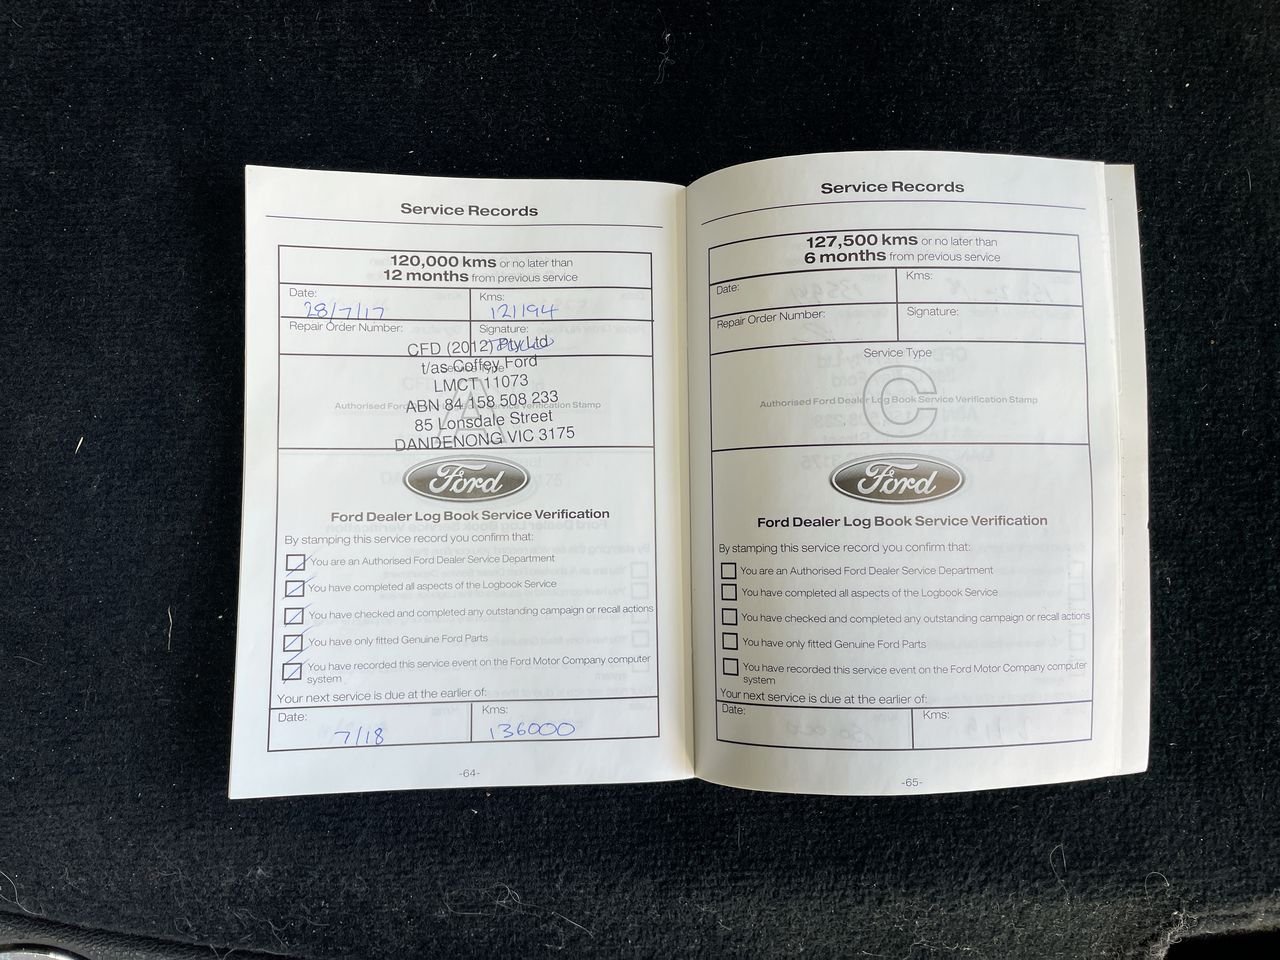 Service Records
120,000 kms or no later than
12 months from previous service
Date: Kms:
28/7/17 121194
Repair Order Number: Signature:
CFD (2012) Pty Ltd
t/as Coffey Ford
Service Type
LMCT 11073
A
ABN 84 158 508 233
Authorised Ford Service Verification Stamp
85 Lonsdale Street
DANDENONG VIC 3175
Ford
Ford Dealer Log Book Service Verification
By stamping this service record you confirm that:
You are an Authorised Ford Dealer Service Department
You have completed all aspects of the Logbook Service
You have checked and completed any outstanding campaign or recall actions
You have only fitted Genuine Ford Parts
You have recorded this service event on the Ford Motor Company computer
system
Your next service is due at the earlier of:
Date: Kms:
7/18 136000
-64-
Service Records
127,500 kms or no later than
6 months from previous service
Date: Kms:
Repair Order Number: Signature:
Service Type
C
Authorised Ford Dealer Log Book Service Verification Stamp
Ford
Ford Dealer Log Book Service Verification
By stamping this service record you confirm that:
You are an Authorised Ford Dealer Service Department
You have completed all aspects of the Logbook Service
You have checked and completed any outstanding campaign or recall actions
You have only fitted Genuine Ford Parts
You have recorded this service event on the Ford Motor Company computer
system
Your next service is due at the earlier of:
Date: Kms:
-65-